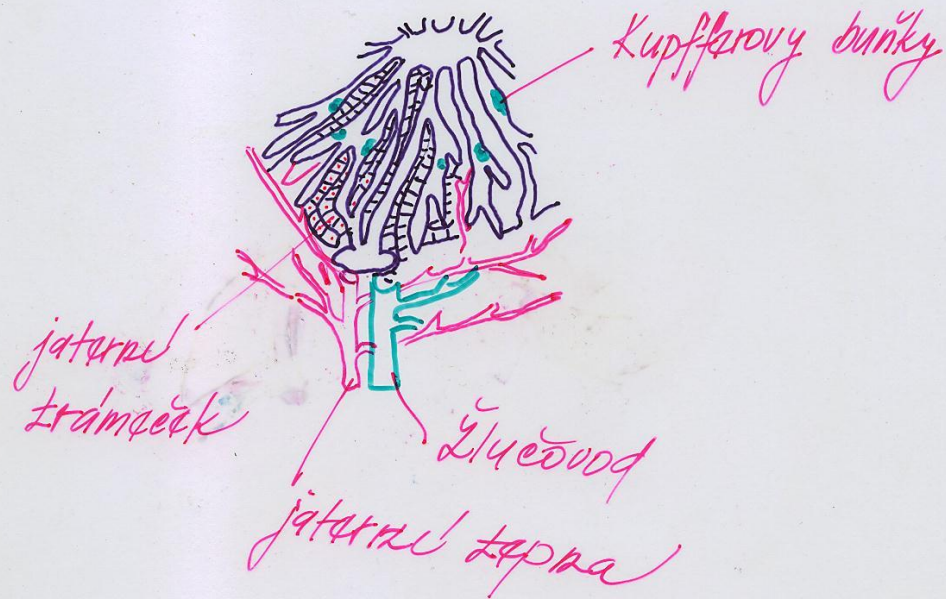 Kupfferovy buňky
jaterní
trámeček
Žlučovod
jaterní tepna